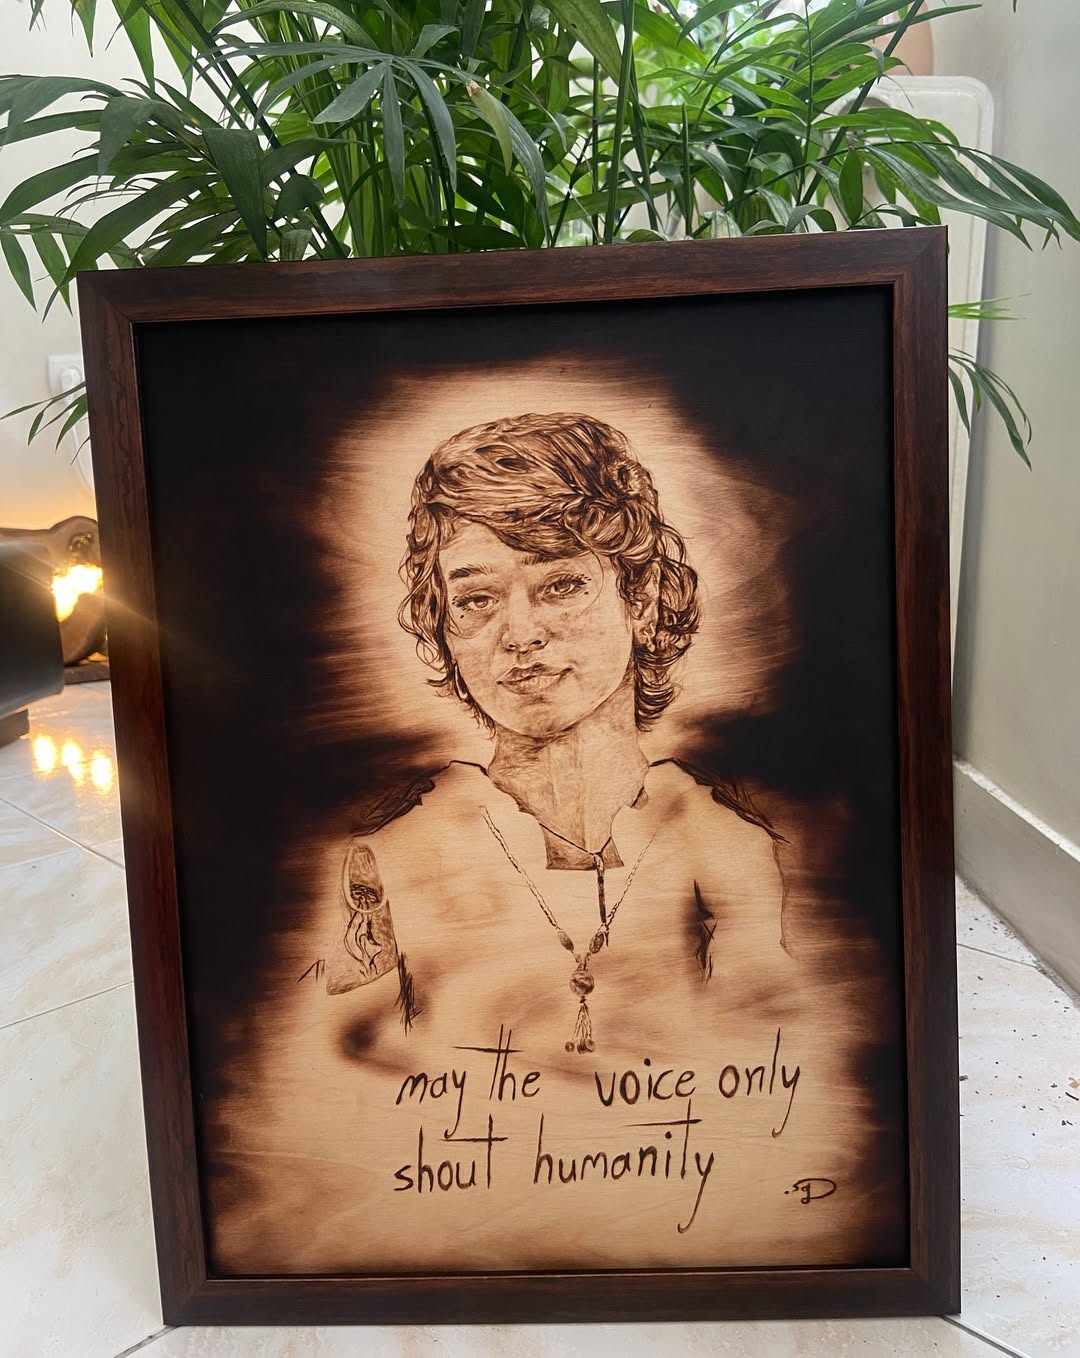 may the voice only
shout humanity